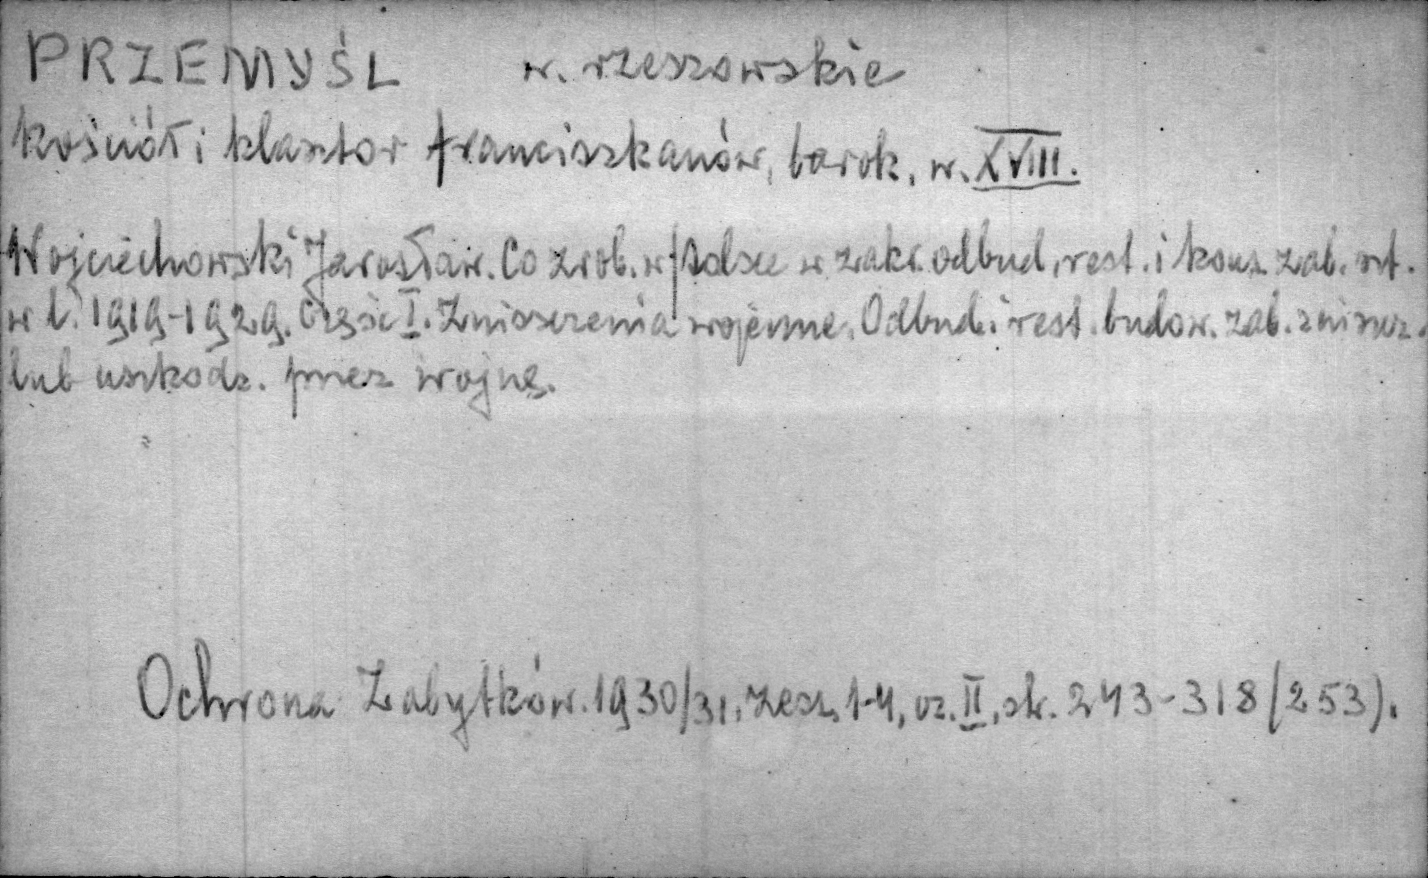 PRZEMYŚL w. rzeszowskie
Kościół i klasztor franciszkanów, barok, w. XVIII.
Wojciechowski Jarosław. Co zrob. w Polsce w zakr. odbud, rest. i kons. zab. szt.
w l. 1919-1929. Część I. Zniszczenia wojenne. Odbud. i rest. budow. zab. zniszcz.
lub uszkodz. przez wojnę.
Ochrona Zabytków. 1930/31, zesz. 1-4, cz. II, str. 243-318 (253).